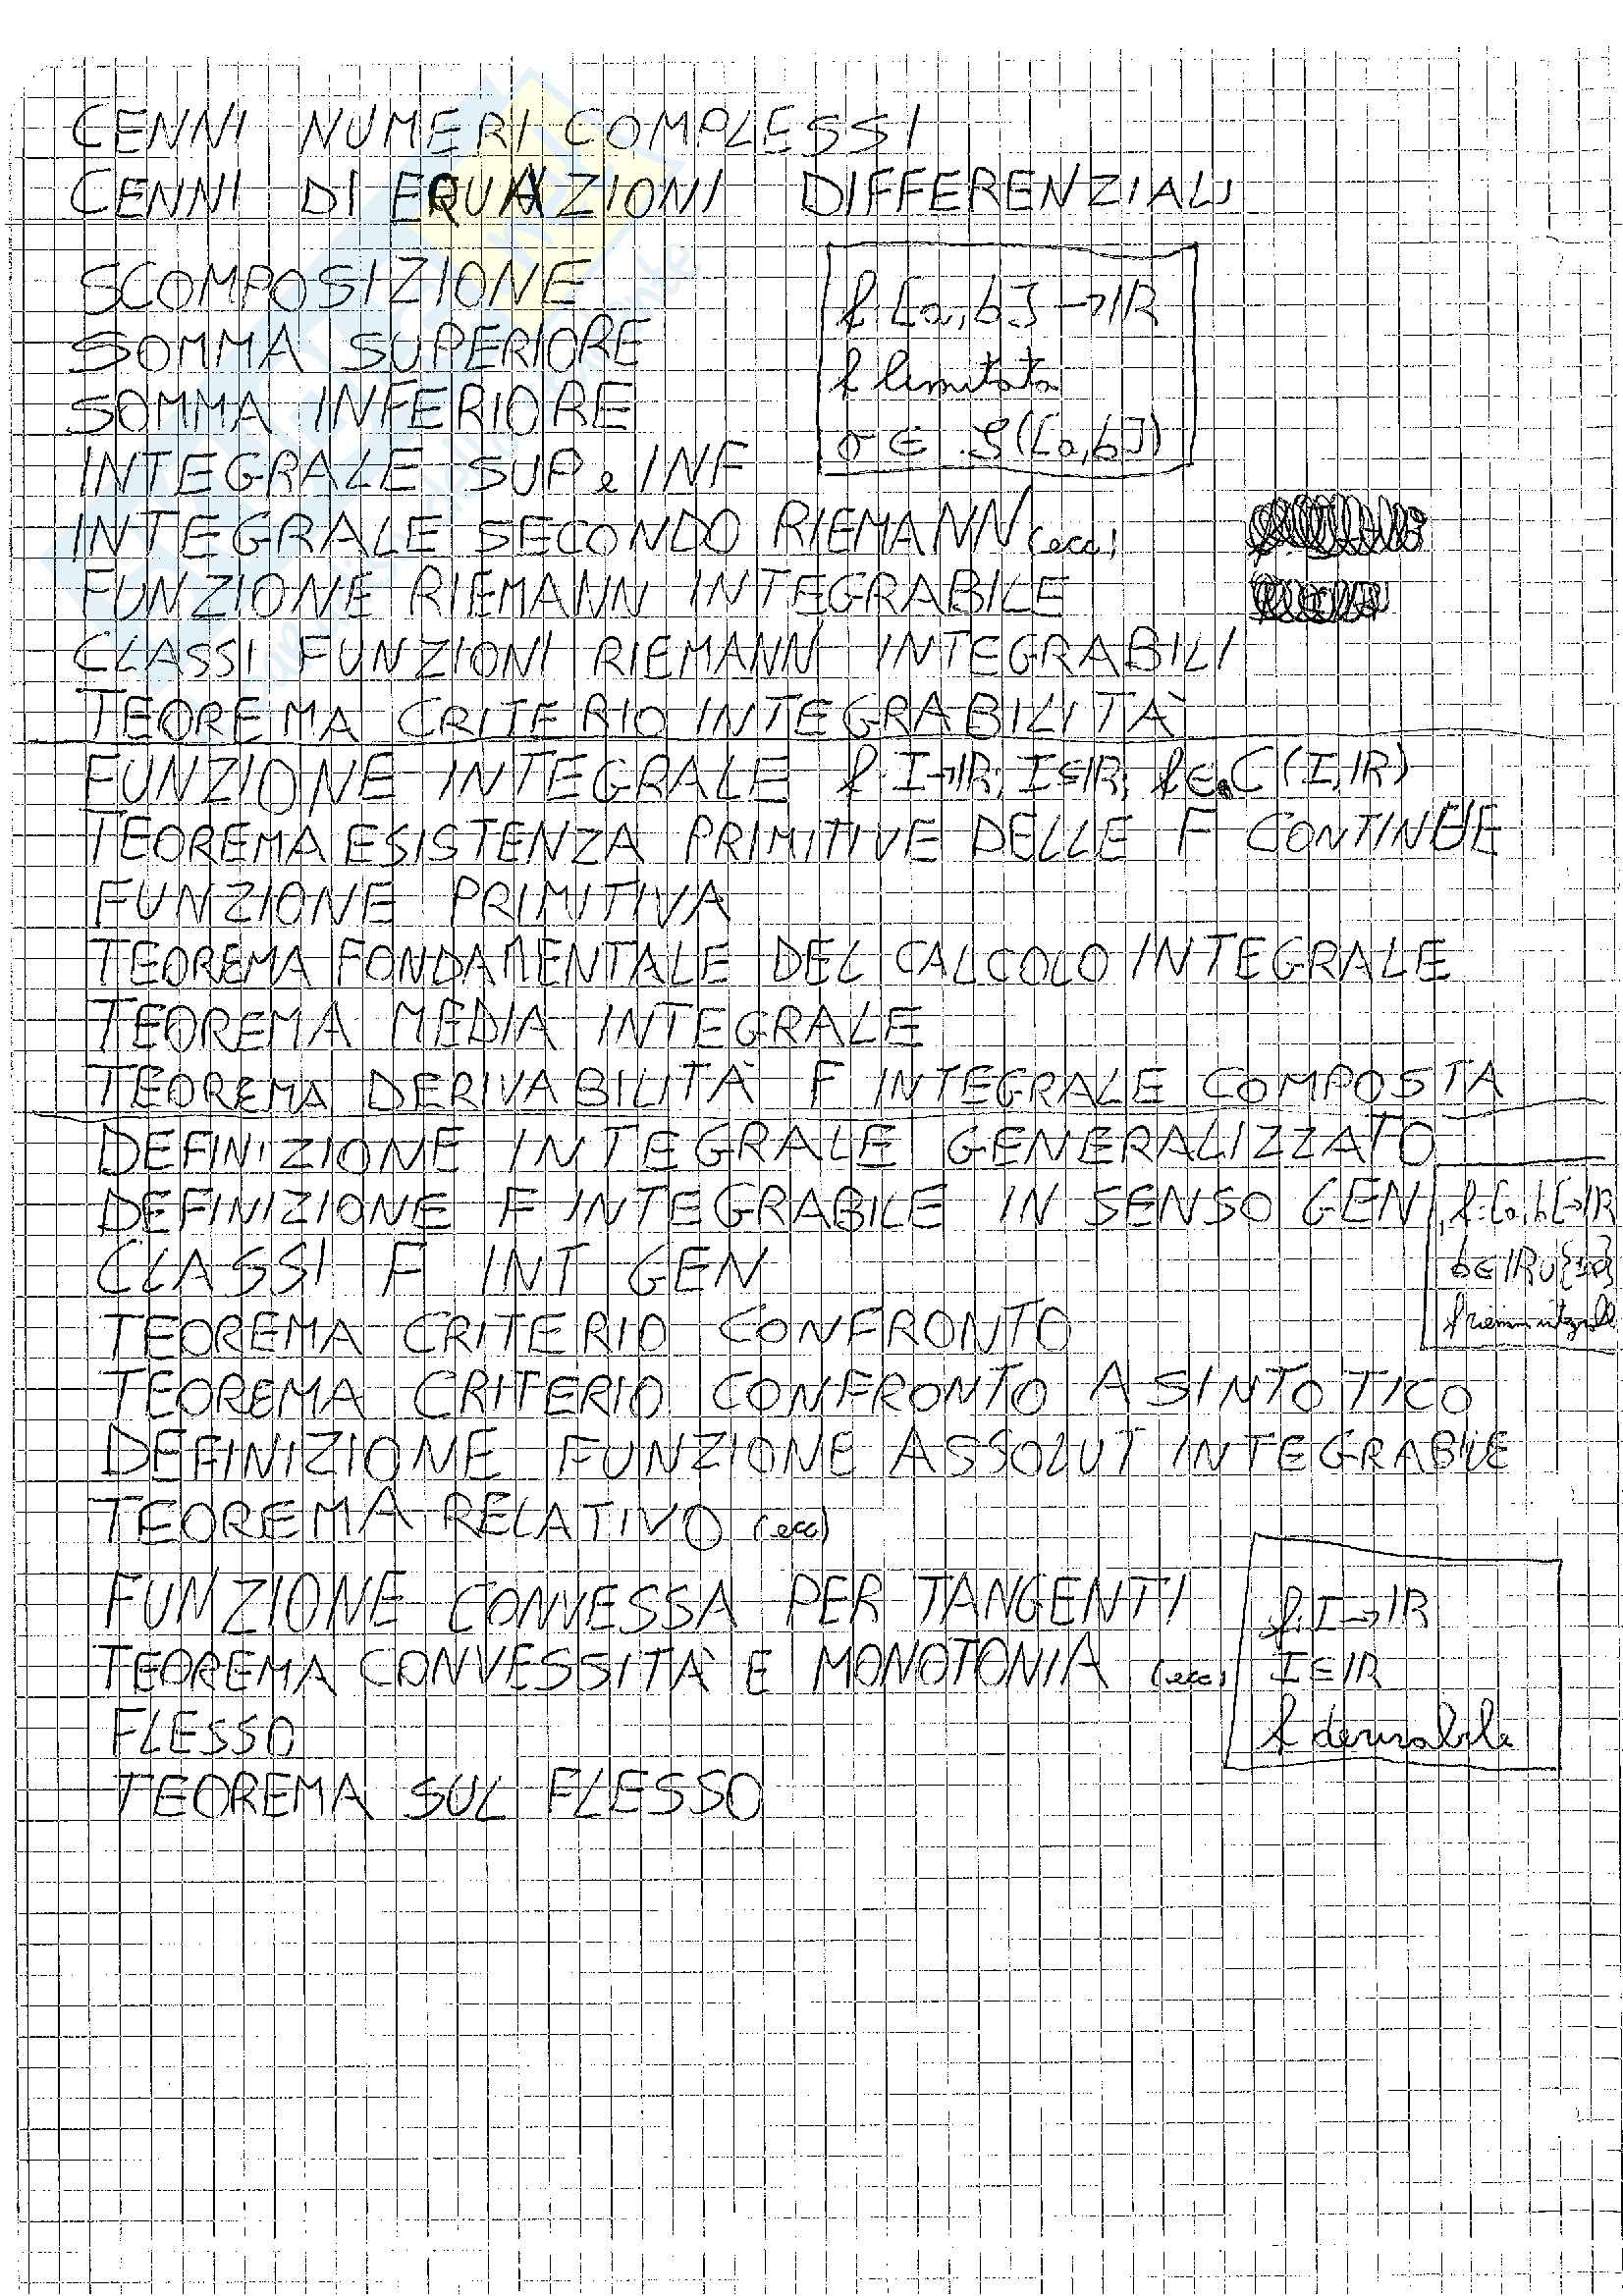 CENNI NUMERI COMPLESSI
CENNI DI EQUAZIONI DIFFERENZIALI
SCOMPOSIZIONE
SOMMA SUPERIORE
SOMMA INFERIORE
INTEGRALE SUP e INF
f:[a,b]→IR
f limitata
σ ∈ S([a,b])
INTEGRALE SECONDO RIEMANN (ecc)
FUNZIONE RIEMANN INTEGRABILE
CLASSI FUNZIONI RIEMANN INTEGRABILI
TEOREMA CRITERIO INTEGRABILITÀ
FUNZIONE INTEGRALE f:I→IR; I⊆IR; f∈C(I,IR)
TEOREMA ESISTENZA PRIMITIVE DELLE F CONTINUE
FUNZIONE PRIMITIVA
TEOREMA FONDAMENTALE DEL CALCOLO INTEGRALE
TEOREMA MEDIA INTEGRALE
TEOREMA DERIVABILITÀ F INTEGRALE COMPOSTA
DEFINIZIONE INTEGRALE GENERALIZZATO
DEFINIZIONE F INTEGRABILE IN SENSO GEN
f:[a,b[→IR
b∈IR∪{±∞}
CLASSI F INT GEN
TEOREMA CRITERIO CONFRONTO
TEOREMA CRITERIO CONFRONTO ASINTOTICO
DEFINIZIONE FUNZIONE ASSOLUT INTEGRABILE
TEOREMA RELATIVO (ecc)
FUNZIONE CONVESSA PER TANGENTI
TEOREMA CONVESSITÀ E MONOTONIA (ecc)
f:I→IR
I⊆IR
f derivabile
FLESSO
TEOREMA SUL FLESSO